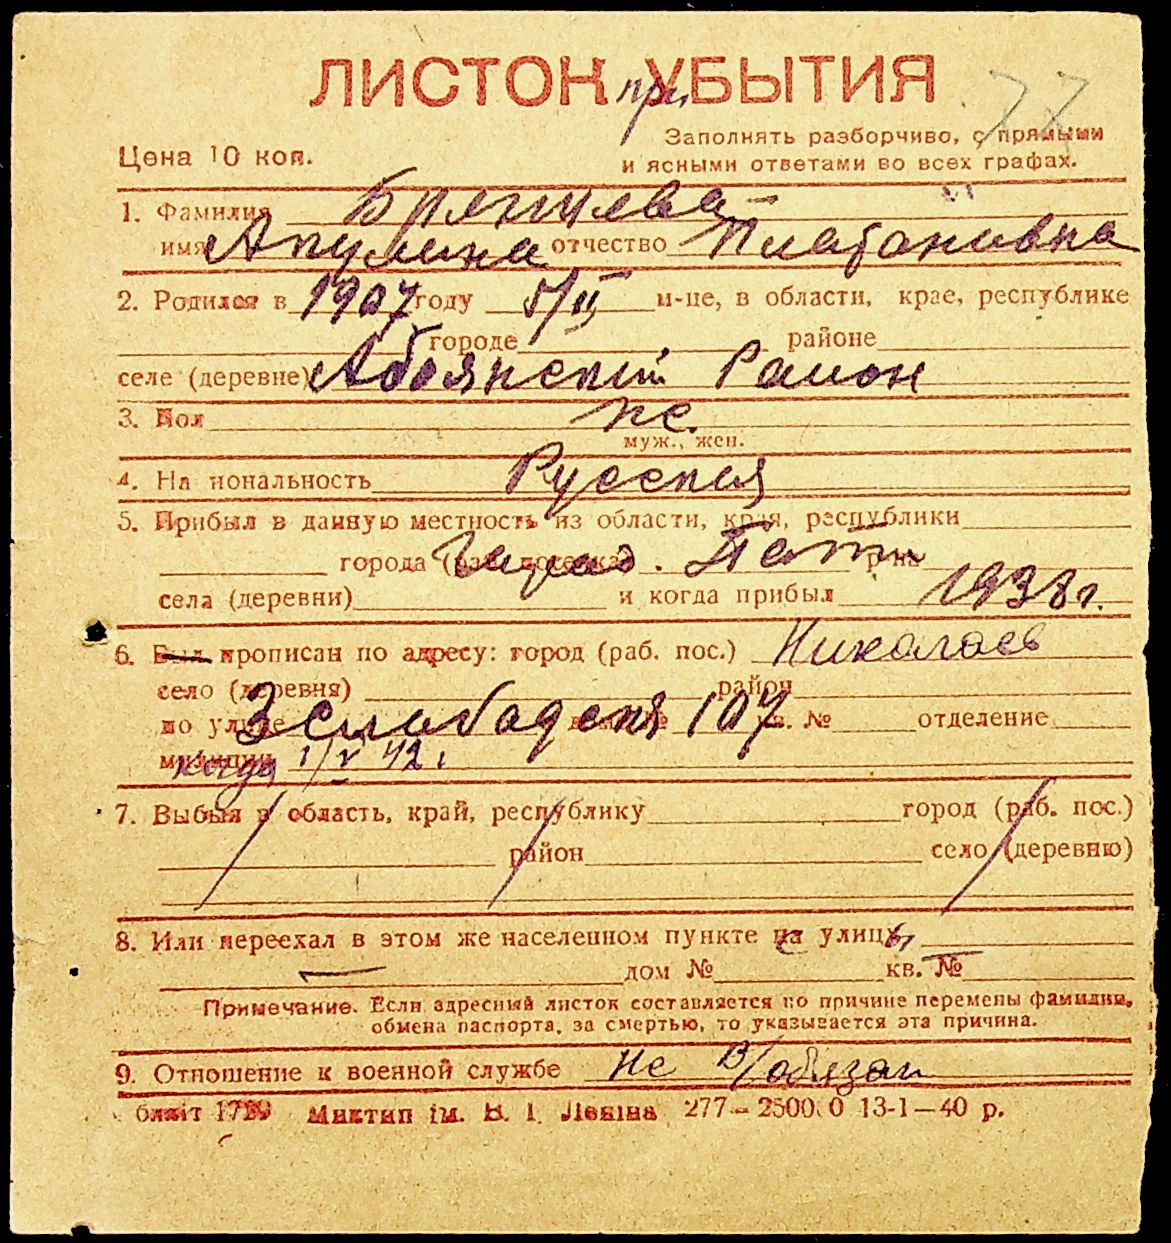 ЛИСТОК при УБЫТИЯ
77
Цена 10 коп.
Заполнять разборчиво, с прямыми
и ясными ответами во всех графах.
1. Фамилия Брянцева
имя Акулина отчество Платановна
2. Родился в 1907 году 5/II м-це, в области, крае, республике
городе районе
селе (деревне) Абоянский Район
3. Пол же.
муж., жен.
4. На иональность Русская
5. Прибыл в данную местность из области, края, республики
города (раб. поселка) Город. Пати р-на
села (деревни) и когда прибыл 1938г.
6. Был прописан по адресу: город (раб. пос.) Николаев
село (деревня) район
по улице 3 Слабодская 107 кв. № отделение
милиции когда 1/V 42 г
7. Выбыл в область, край, республику город (раб. пос.)
район село (деревню)
8. Или переехал в этом же населенном пункте с улицы
дом № кв. №
Примечание. Если адресный листок составляется по причине перемены фамилии,
обмена паспорта, за смертью, то указывается эта причина.
9. Отношение к военной службе Не В/обязан
Миктип ім. В. І. Леніна 277—2500 0 13-1—40 р.